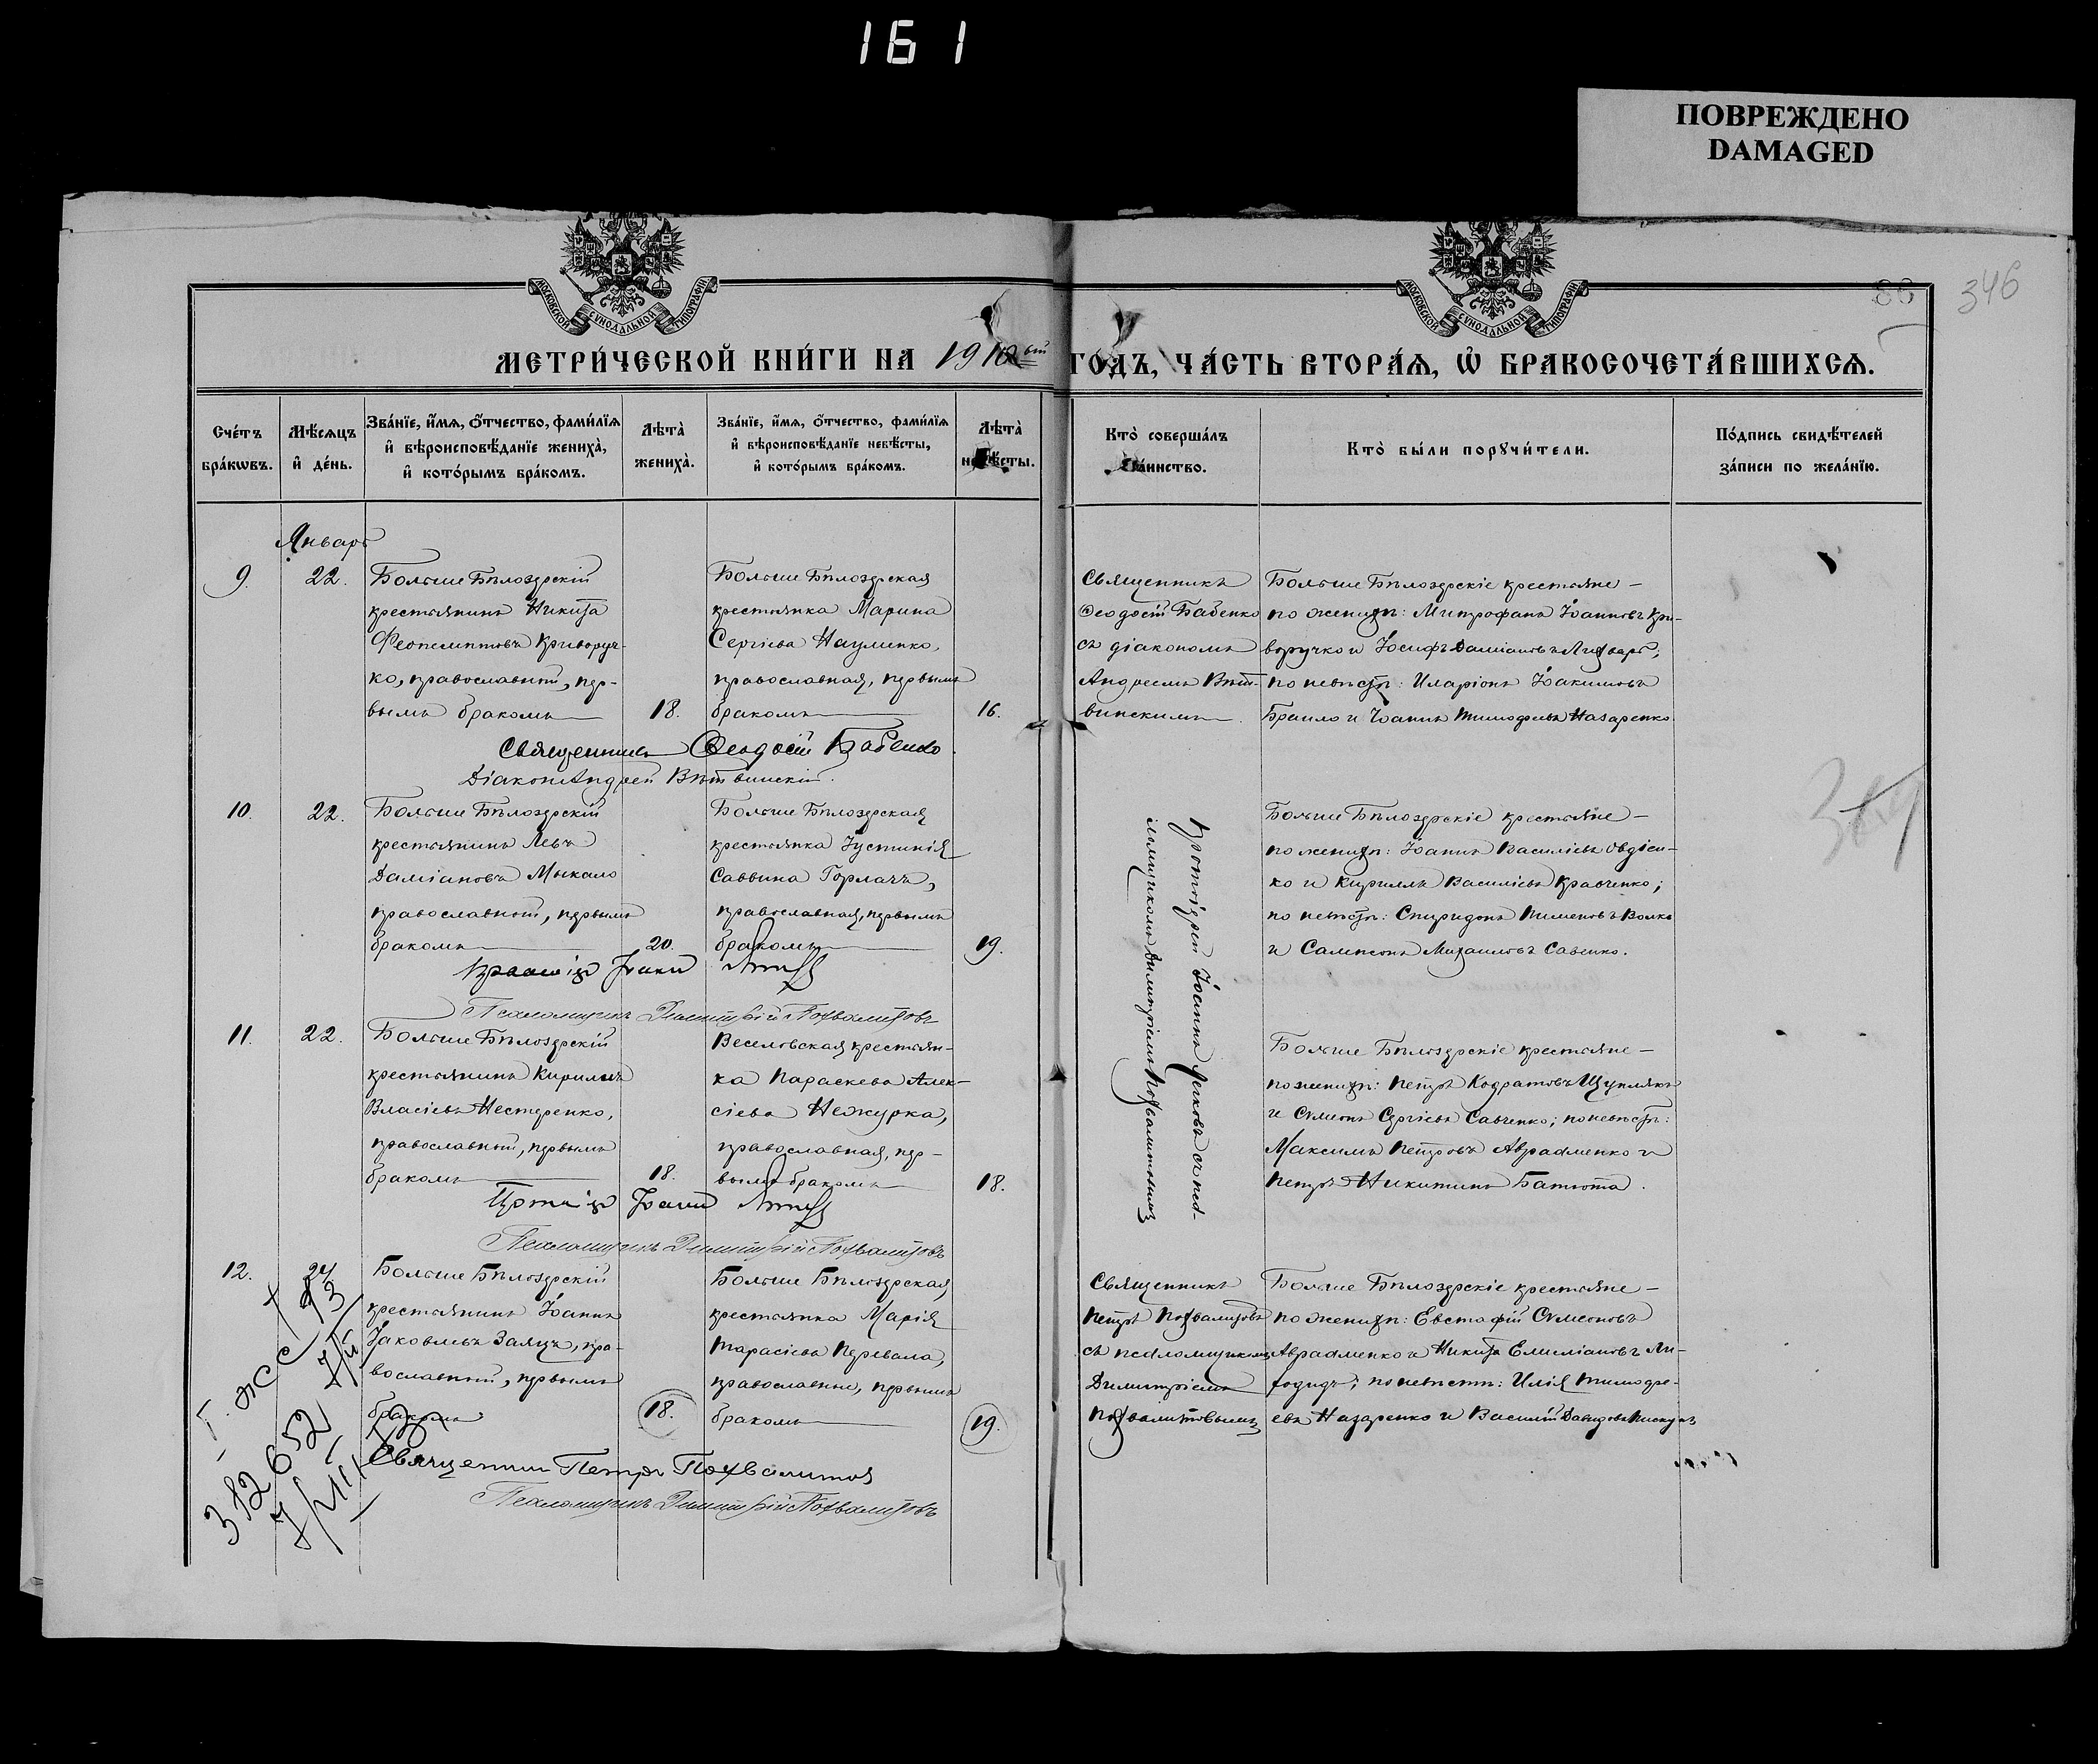 161
ПОВРЕЖДЕНО
DAMAGED
346
86
МОСКОВСКОЙ СУНОДАЛЬНОЙ ТИПОГРАФІИ
МОСКОВСКОЙ СУНОДАЛЬНОЙ ТИПОГРАФІИ
МЕТРИ́ЧЕСКОЙ КНИ́ГИ НА 1910ый ГОДЪ, ЧА́СТЬ ВТОРА́Ѧ, Ѡ БРАКОСОЧЕТА́ВШИХСѦ.
Сче́тъ
бра́кѡвъ.
Мѣ́сяцъ
и҆ де́нь.
Зва́нїе, и҆́мѧ, ѻ҆́тчество, фами́лїѧ
и҆ вѣроисповѣ́данїе жениха̀,
и҆ кото́рымъ бра́комъ.
Лѣта̀
жениха̀.
Зва́нїе, и҆́мѧ, ѻ҆́тчество, фами́лїѧ
и҆ вѣроисповѣ́данїе невѣ́сты,
и҆ кото́рымъ бра́комъ.
Лѣта̀
невѣ́сты.
Кто̀ соверша́лъ
та́инство.
Кто̀ бы́ли порꙋчи́тели.
По́дпись свидѣ́телей
за́писи по жела́нїю.
Январь
9.
22.
Больше Бѣлозерскій
крестьянинъ Никита
Феопемптовъ Криворуч-
ко, православный, пер-
вымъ бракомъ
18.
Больше Бѣлозерская
крестьянка Марина
Сергіева Науменко,
православная, первымъ
бракомъ
16.
Священникъ
Ѳеодосій Бабенко
съ діакономъ
Андреемъ Вѣт-
винскимъ
Больше Бѣлозерскіе крестьяне –
по женихѣ: Митрофанъ Іоанновъ Кри-
воручко и Іосифъ Даміановъ Лихварь,
по невѣстѣ: Иларіонъ Іоакимовъ
Браило и Іоаннъ Тимофеевъ Назаренко
Священникъ Ѳеодосій Бабенко
Діаконъ Андрей Вѣтвинскій.
10.
22.
Больше Бѣлозерскій
крестьянинъ Левъ
Даміановъ Мыкало
православный, первымъ
бракомъ
20.
Больше Бѣлозерская
крестьянка Іустинія
Саввина Горлачъ,
православная, первымъ
бракомъ
19.
Протоіерей Іоаннъ
Больше Бѣлозерскіе крестьяне –
по женихѣ: Іоаннъ Василіевъ Овдіен-
ко и Кириллъ Василіевъ Кравченко;
по невѣстѣ: Спиридонъ Пименовъ Волкъ
и Сампсонъ Михаиловъ Савенко.
Псаломщикъ Димитрій Похвалитовъ
11.
22.
Больше Бѣлозерскій
крестьянинъ Кириллъ
Власіевъ Нестеренко,
православный, первымъ
бракомъ
18.
Веселовская крестьян-
ка Параскева Алек-
сіева Нежурка,
православная, пер-
вымъ бракомъ
18.
Больше Бѣлозерскіе крестьяне –
по женихѣ: Петръ Кодратовъ Щуплякъ
и Сѵмеонъ Сергіевъ Савченко; по невѣстѣ:
Максимъ Петровъ Авраменко и
Петръ Никитинъ Батюта.
Псаломщикъ Димитрій Похвалитовъ
12.
24
Больше Бѣлозерскій
крестьянинъ Іоаннъ
Іаковлевъ Заяцъ, пра-
вославный, первымъ
бракомъ
18.
Больше Бѣлозерская
крестьянка Марія
Тарасіева Перевала,
православные, первымъ
бракомъ
19.
Священникъ
Петръ Похвалитовъ
съ псаломщикомъ
Димитріемъ
Похвалитовымъ
Больше Бѣлозерскіе крестьяне –
по женихѣ: Евстафій Сѵмеоновъ
Авраменко и Никита Емиліановъ Ли-
ходидъ; по невѣстѣ: Илія Тимофе-
евъ Назаренко и Василій Давидовъ Пискунъ
Священникъ Петръ Похвалитовъ
Псаломщикъ Димитрій Похвалитовъ
312652